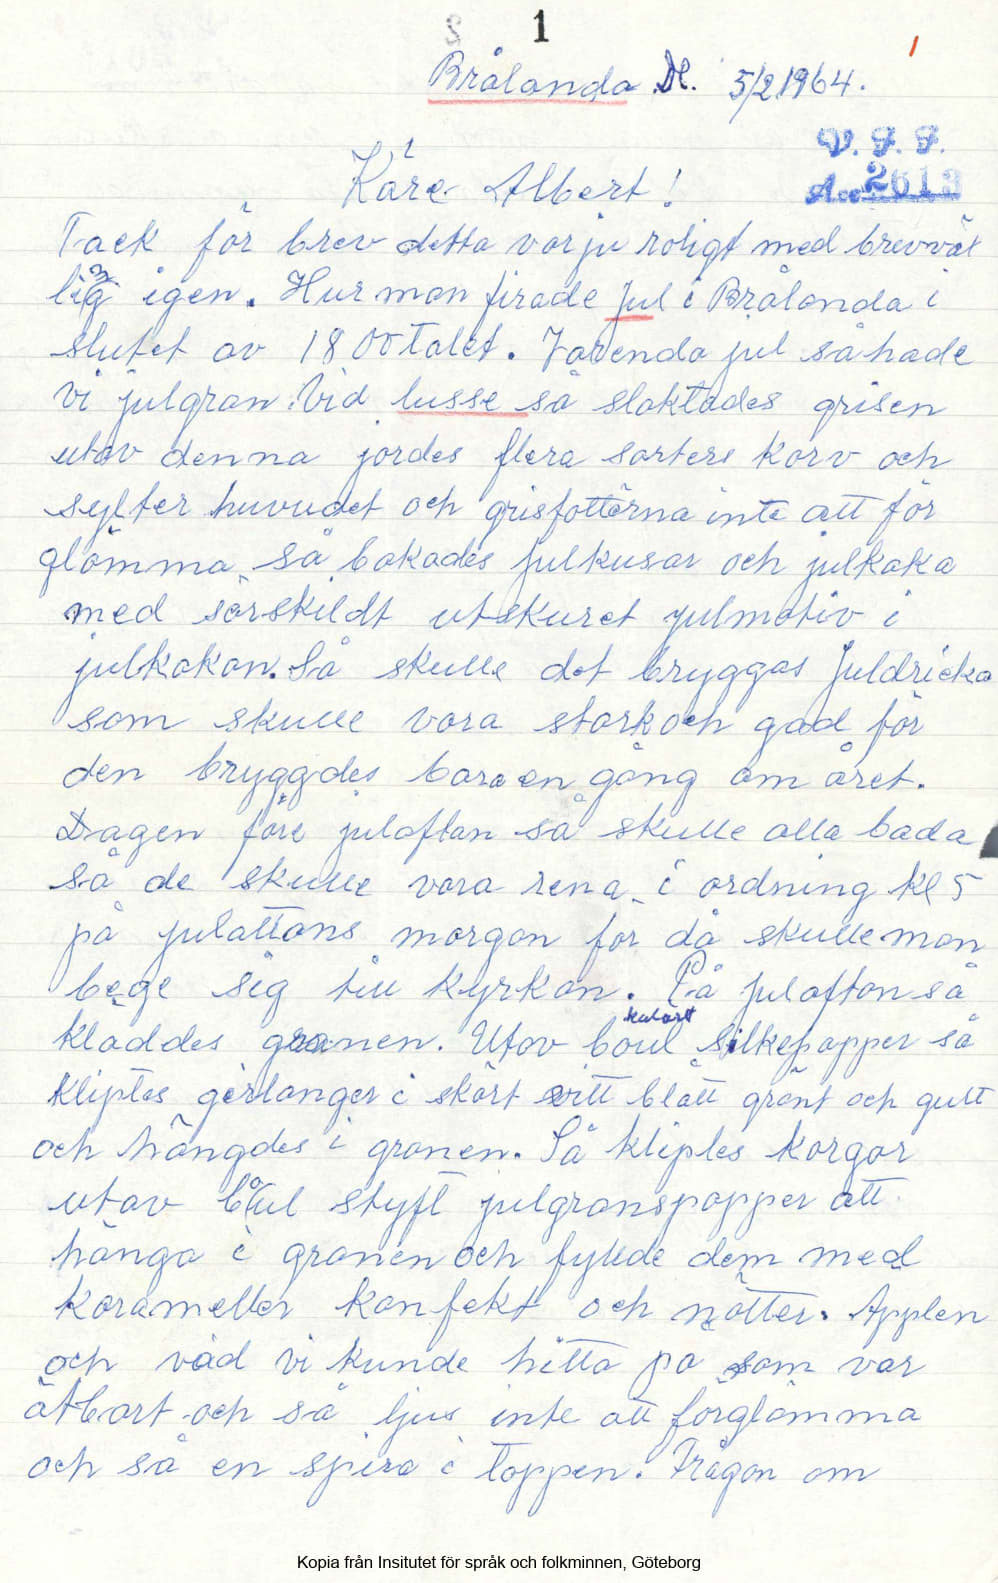 1
Brålanda Dl. 5/2 1964.
V. F. F.
Acc 2613
Käre Albert!
Tack för brev detta var ju roligt med brevväx
ling igen. Hur man firade Jul i Brålanda i
slutet av 1800 talet. Varenda jul så hade
vi julgran. Vid lusse så slaktades grisen
utav denna jordes flera sorters korv och
sylter huvudet och grisfötterna inte att för
glömma så bakades julkusar och julkaka
med särskildt utskuret julmotiv i
julkakan. Så skulle det bryggas Juldricka
som skulle vara stark och god för
den bryggdes bara en gång om året.
Dagen före julaftan så skulle alla bada
så de skulle vara rena i ordning Kl 5
på julattans morgon för då skulle man
bege sig till Kyrkan. På julafton så
kläddes granen. Utav kulört silkepapper så
kliptes girlanger i skärt vitt blått grönt och gult
och hängdes i granen. Så kliptes korgar
utav styft julgranspapper att
hänga i granen och fyllde dem med
karameller konfekt och nötter. Äpplen
och vad vi kunde hitta på som var
ätbart och så ljus inte att förglömma
och så en spira i toppen. Frågan om
Kopia från Insitutet för språk och folkminnen, Göteborg